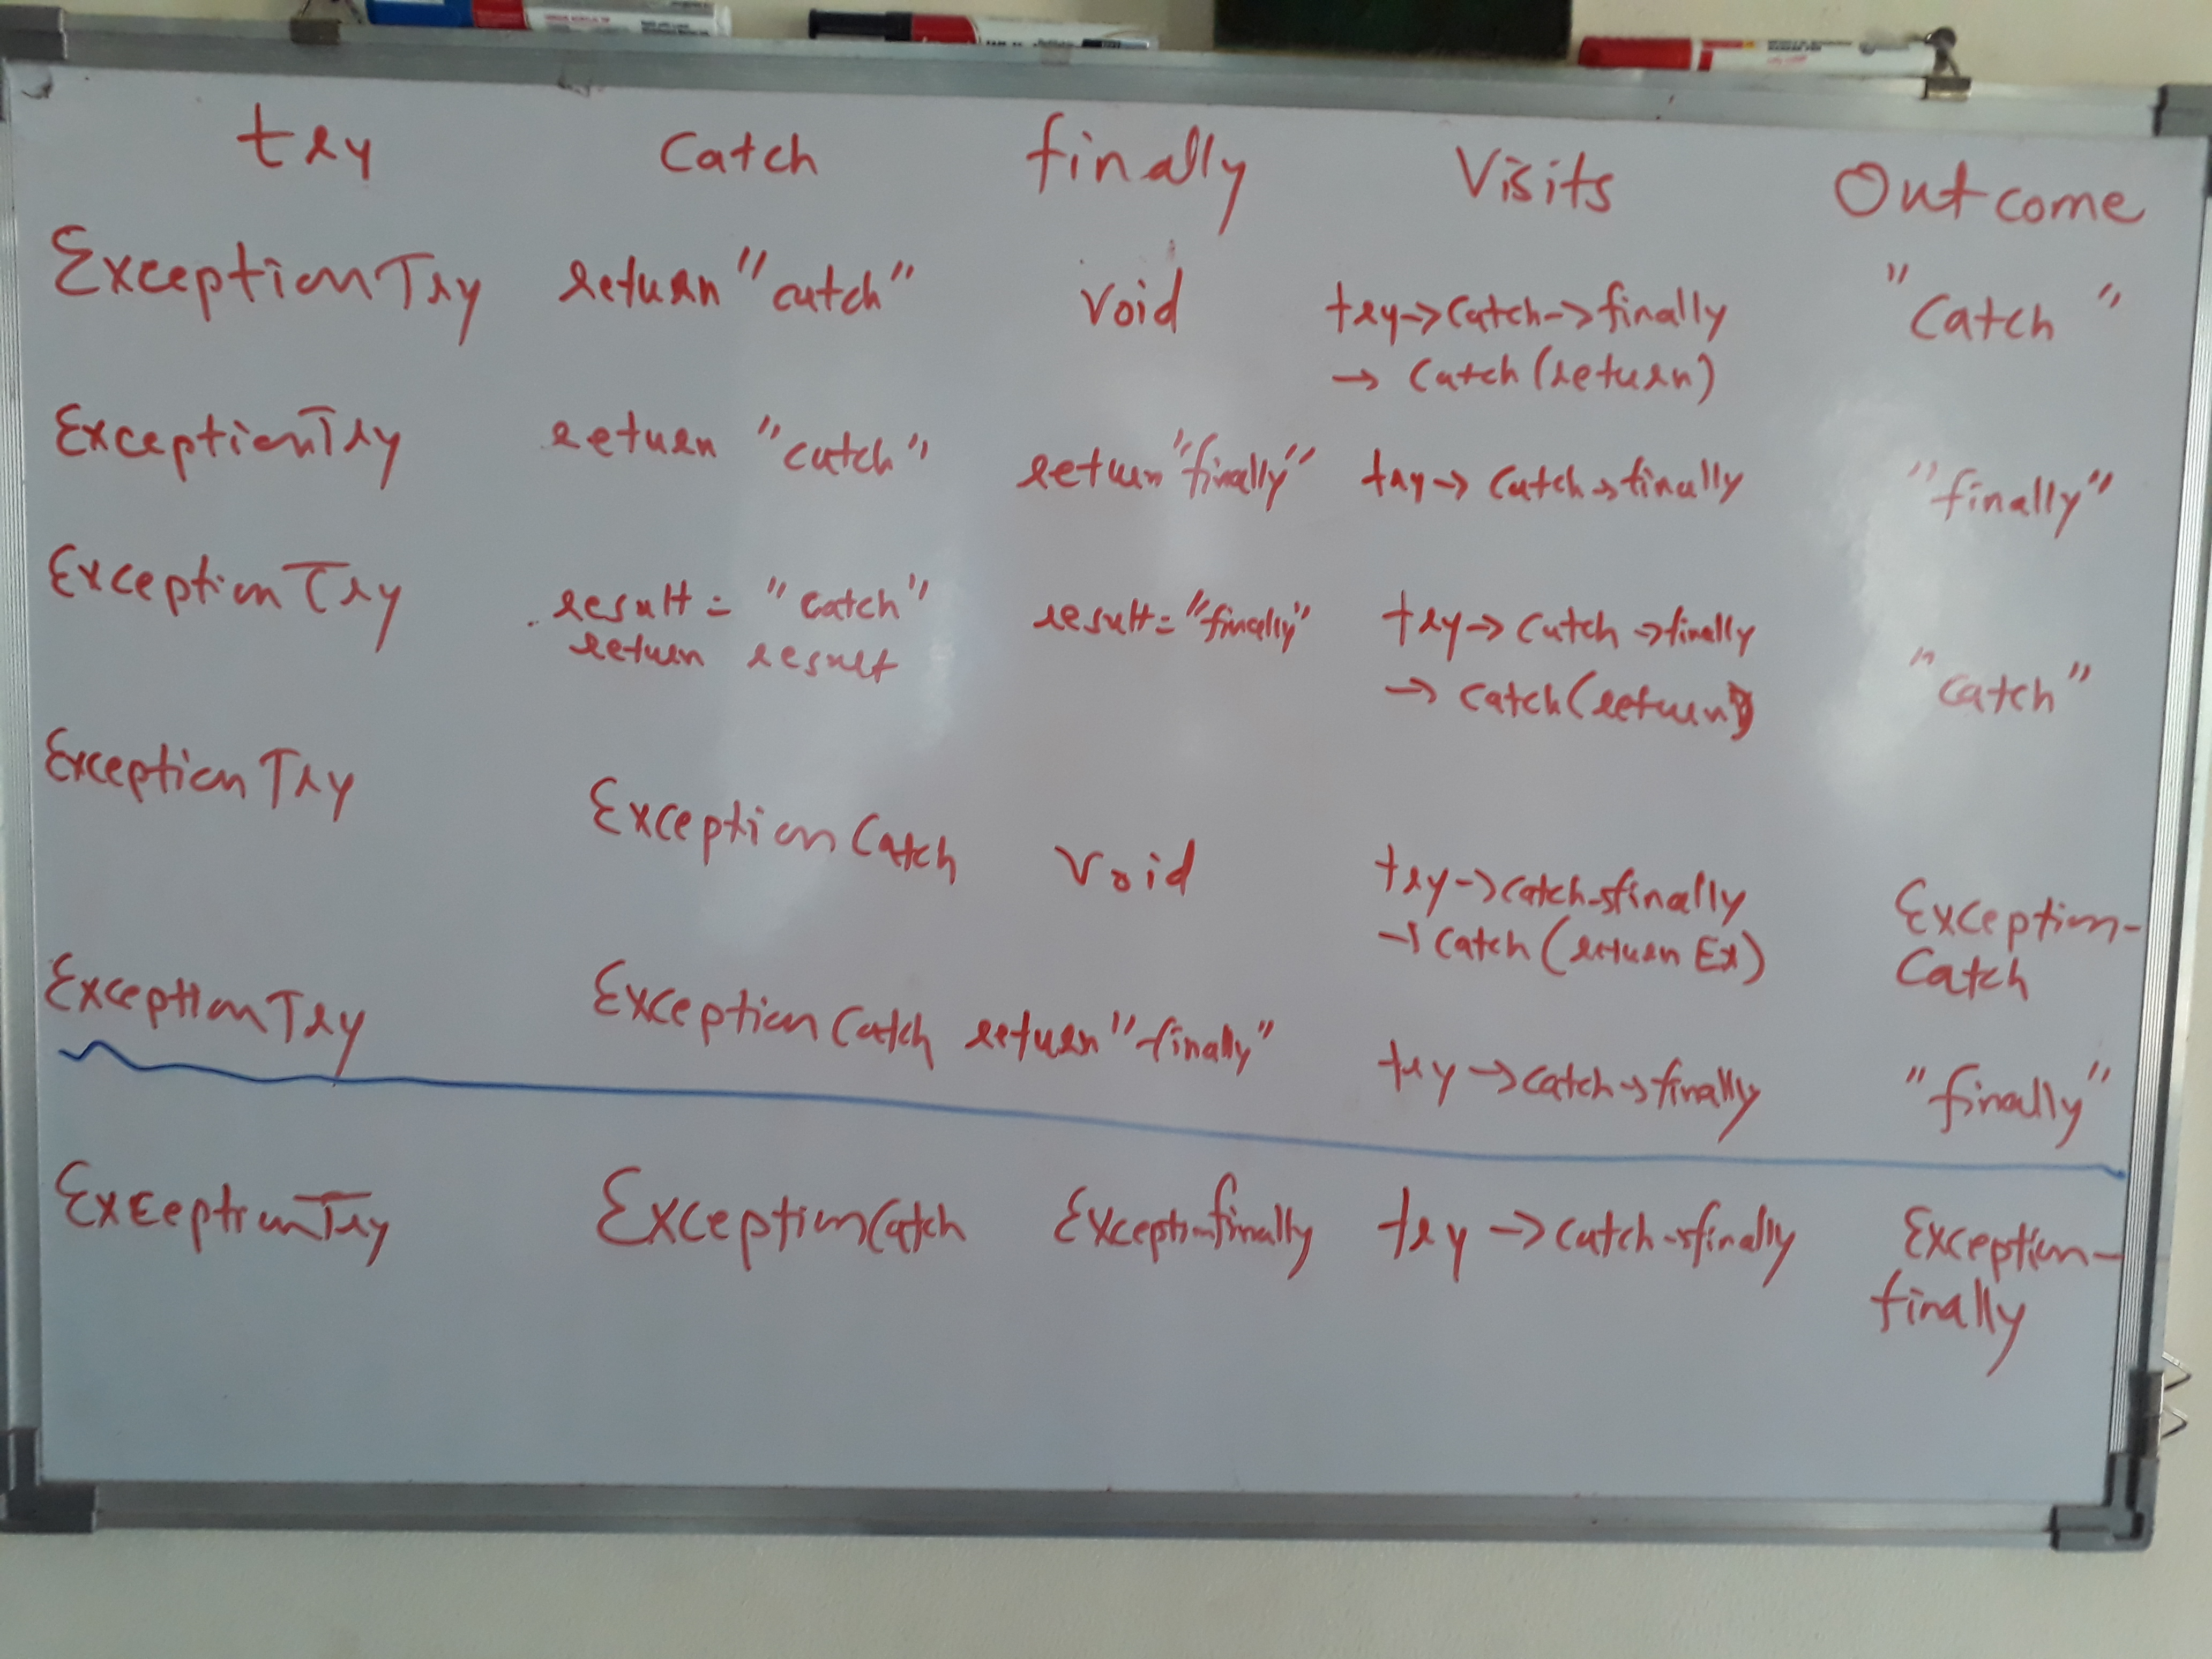 try Catch finally Visits Outcome
ExceptionTry return "catch" void try->catch->finally "Catch"
-> Catch(return)
ExceptionTry return "catch" return "finally" try-> catch->finally "finally"
ExceptionTry result = "catch" result = "finally" try-> catch ->finally "catch"
return result -> catch(return)
ExceptionTry ExceptionCatch void try->catch->finally Exception-
-> catch(return Ex) Catch
ExceptionTry ExceptionCatch return "finally" try->catch->finally "finally"
ExceptionTry ExceptionCatch Exceptionfinally try -> catch->finally Exception-
finally